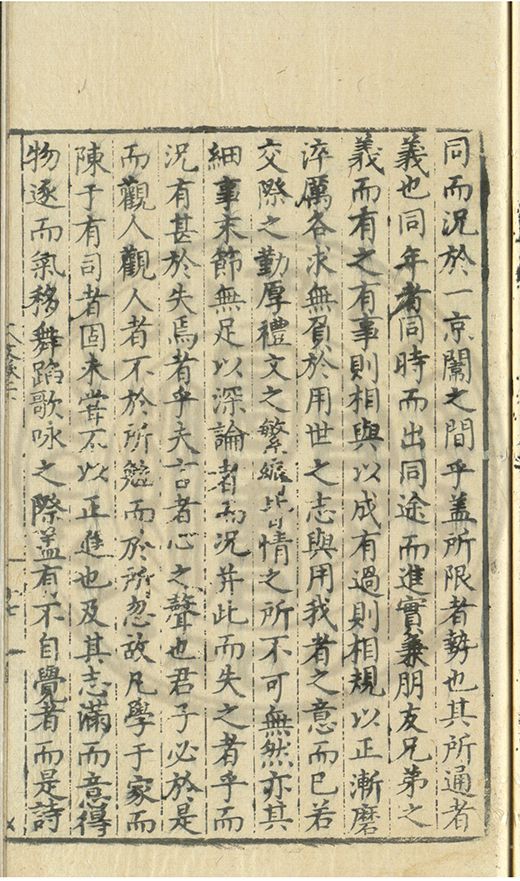 同而況於一京闈之間乎蓋所限者勢也其所通者
義也同年者同時而出同途而進實兼朋友兄弟之
義而有之有事則相與以成有過則相規以正漸磨
淬厲各求無負於用世之志與用我者之意而已若
交際之勤厚禮文之繁縟皆情之所不可無然亦其
細事末節無足以深論者而況并此而失之者乎而
況有甚於失焉者乎夫言者心之聲也君子必於是
而觀人觀人者不於所勉而於所忽故凡學于家而
陳于有司者固未嘗不以正進也及其志滿而意得
物逐而氣移舞蹈歌咏之際蓋有不自覺者而是詩